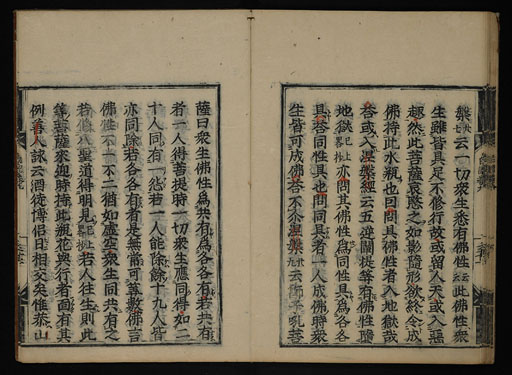 槃云一切衆生悉有佛性此佛性衆
生雖皆具足不修行故或留人天或入惡
趣然此菩薩哀愍之如影隨形欲終令成
佛持此水瓶也問具佛性者入地獄哉
答或入涅槃經云五逆闡提等有佛性墮
地獄亦問其佛性爲同性具爲各各
具答同性具也問同具者一人成佛時衆
生皆可成佛答不尒涅槃云師子吼菩
薩曰衆生佛性爲共有爲各各有若共有
者一人得菩提時一切衆生應同得如二
十人同有一怨若一人能除餘十九人皆
亦同除若各各有者是無常可算數佛言
佛性不一不二猶如虚空衆生同共有之
若修八聖道得明見若人往生則此
等菩薩來迎時持此瓶花與行者面有其
例善人詠云酒徒博侶日相交矣惟恭山